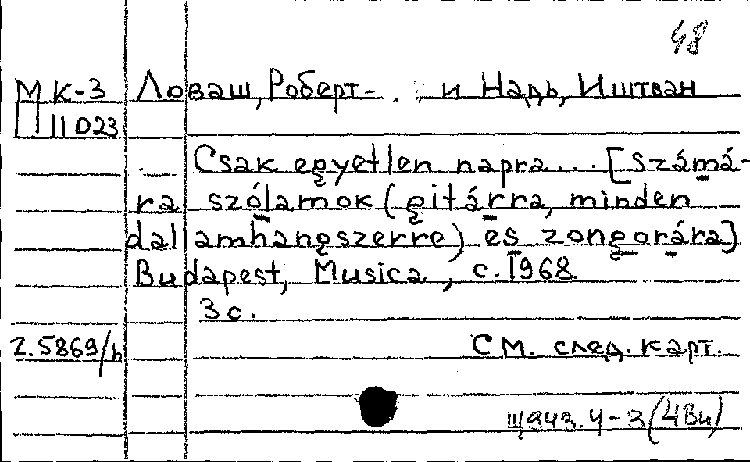 48
МК-3 Ловаш, Роберт- . и Надь, Иштван
П 11023
Csak egyetlen napra... [Számá-
ra szólamok (gitárra, minden
dallamhangszerre) és zongorára]
Budapest, Musica, c. 1968
3 с.
Z.5869/h См. след. карт.
4-3 (4Ви)